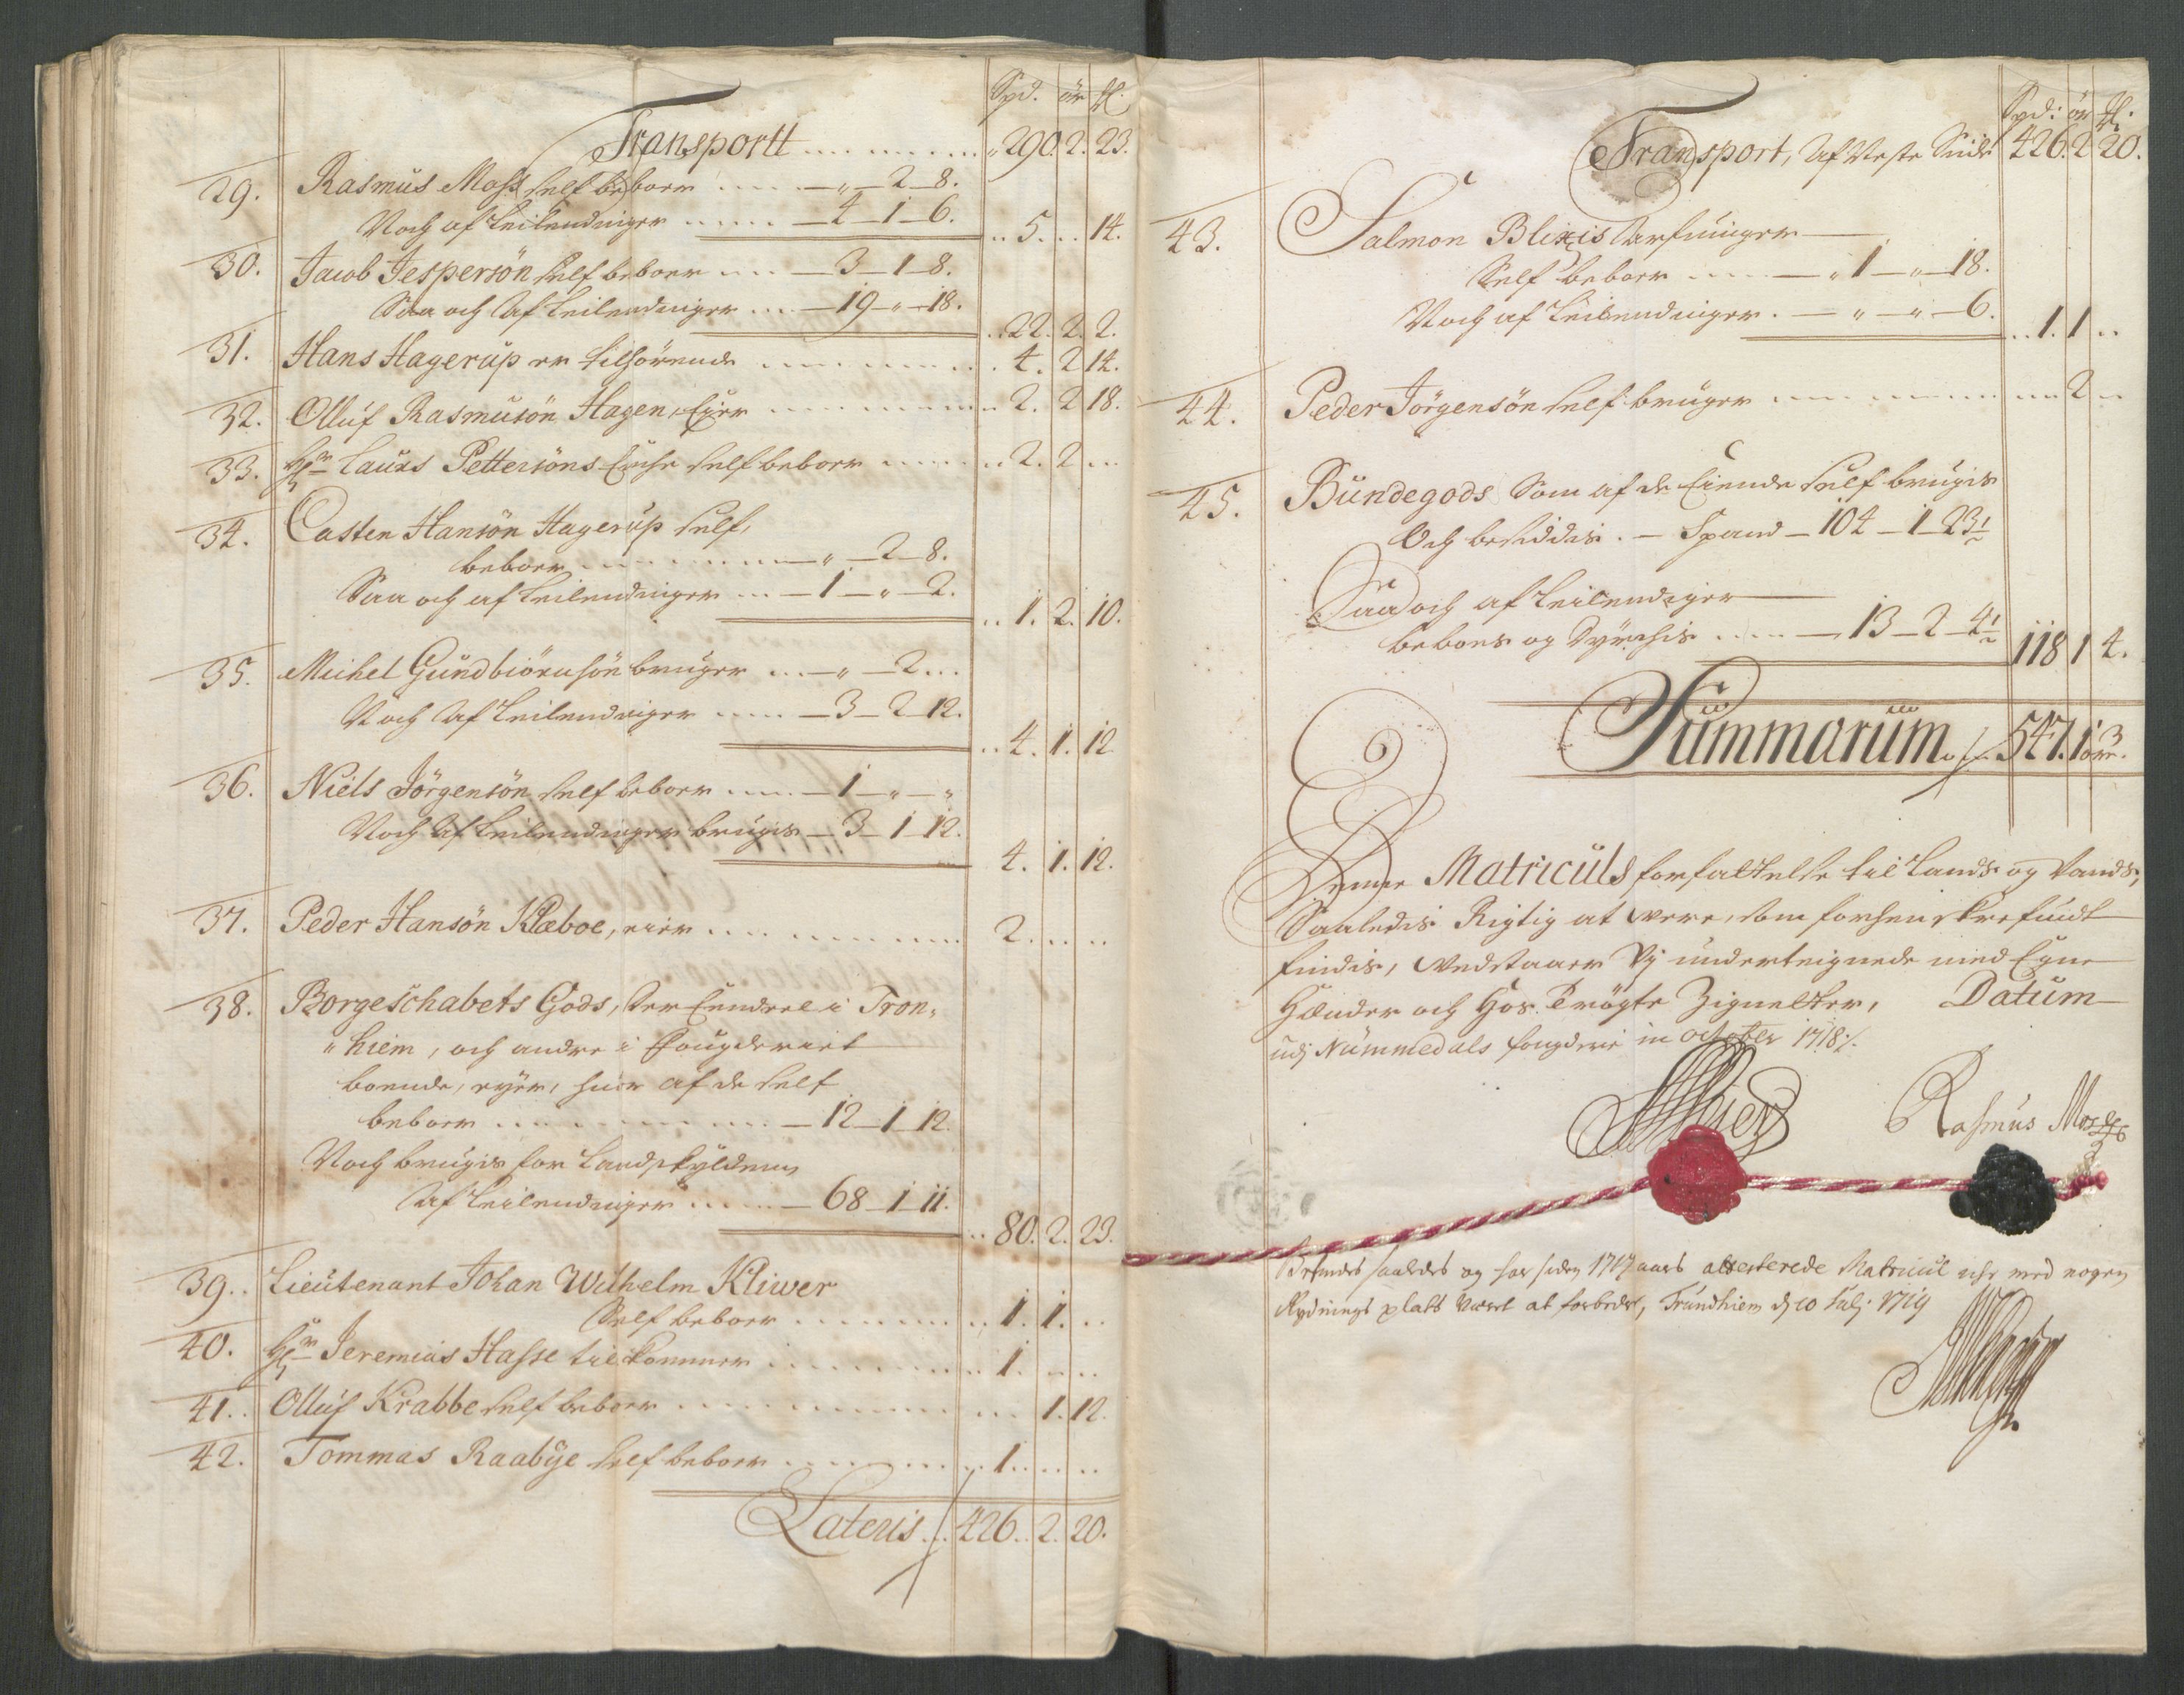 Spd. ör ℔.
Transportt ........ 290. 2. 23.
29. Rasmus Moss self beboer .... — „ — 2 — 8.
Noch af Leilendinger ..... — 4 — 1 — 6. .. 5. .. 14.
30. Jacob Jespersön self beboer ... — 3 — 1 — 8.
Saa och af Leilendinger ... — 19 — „ — 18. .. 22. 2. 2.
31. Hans Hagerup er tilhörende ........ 4. 2 14.
32. Olluf Rasmusön Hagen, Eier ........ 2. 2 18.
33. Hr. Laurs Pettersöns Enche self beboer ..... 2. 2 ...
34. Casten Hansön Hagerup self,
beboer ........ — „ — 2 — 8.
Saa och af Leilendinger ... — 1 — „ — 2. .. 1. 2. 10.
35. Michel Gundbiörnsön bruger ... — „ — 2 ...
Noch af Leilendinger ..... — 3 — 2 — 12. .. 4. 1. 12
36. Niels Jörgensön self beboer .... — 1 — „ — „
Noch af Leilendinger brugis — 3 — 1 — 12. 4. 1. 12.
37. Peder Hansön Klæboe, eier ........ 2. ... ..
38. Borgeschabets Gods, som Eendeel i Tron„
„hiem, och andre i Fougderiet
boende, eyer, huor af de self
beboer ........ — 12 — 1 — 12.
Noch brugis for Landskylden,
Af Leilendinger ...... — 68 — 1 — 11. .. 80. 2. 23.
39. Lieutenant Johan Wilhelm Kliwer
Self beboer ........ 1. 1. ..
40. Hr. Jeremias Hasse tilkommer ........ 1. ... ..
41. Olluf Krabbe self beboer ........ 1. 12.
42. Tommas Raabye self beboer ........ 1. ... ..
Lateris ... 426. 2. 20.
Spd: ör ℔:
Transport, Af Neste Siide 426. 2 20.
43. Salmon Blixis Arfuinger —
Self beboer ..... — „ 1 — „ — 18.
Noch af Leilendinger . — „ — „ — 6. .. 1. 1 ..
44. Peder Jörgensön self bruger ........ 2 ..
45. Bundegods Som af de Eiende self brugis
Och besiddis . — Spand — 104 — 1 — 23½
Saa och af Leilendiger —
beboes og Dyrchis ..... — 13 — 2 — 4½ 118 1 4.
Summarum 547. 1 ör 3.
Denne Matriculs forfattelse til Lands og Vands,
Saaledis Rigtig at were, som forhen skrefuidt
findis, wedstaaer Vj underteignede med Egne
Hænder och Hos Trögte Zignetter, Datum
udj Nummedals fougderie in october 1718 ·/.
Rasmus Moss
Befindes saaledes og har siden 1717 aars attesterede Matricul iche med nogen
Rydnings plads været at forbedre, Trundhiem dj 10 Julj 1719